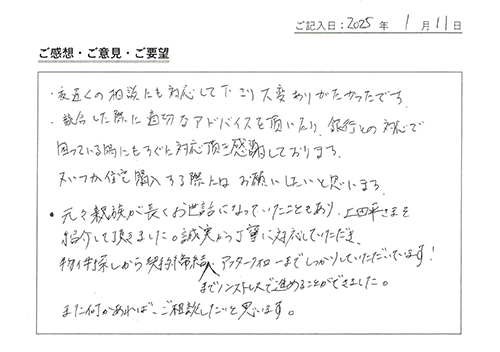 ご記入日：2025年 1月11日
ご感想・ご意見・ご要望
・夜近くの相談にも対応して下さり大変ありがたかったです。
・数々した際に適切なアドバイスを頂いたり、銀行との対応で
困っている時にもすぐに対応頂き感謝しております。
又いつか住宅購入する際はお願いしたいと思います。
・元々親族が長くお世話になっていたこともあり、上田平さまを
紹介して頂きました。誠実かつ丁寧に対応していただき、
物件探しから契約締結 アフターフォローまでしっかりしていただいています！
までノンストレスで進めることができました。
また何かあれば、ご相談したいと思います。